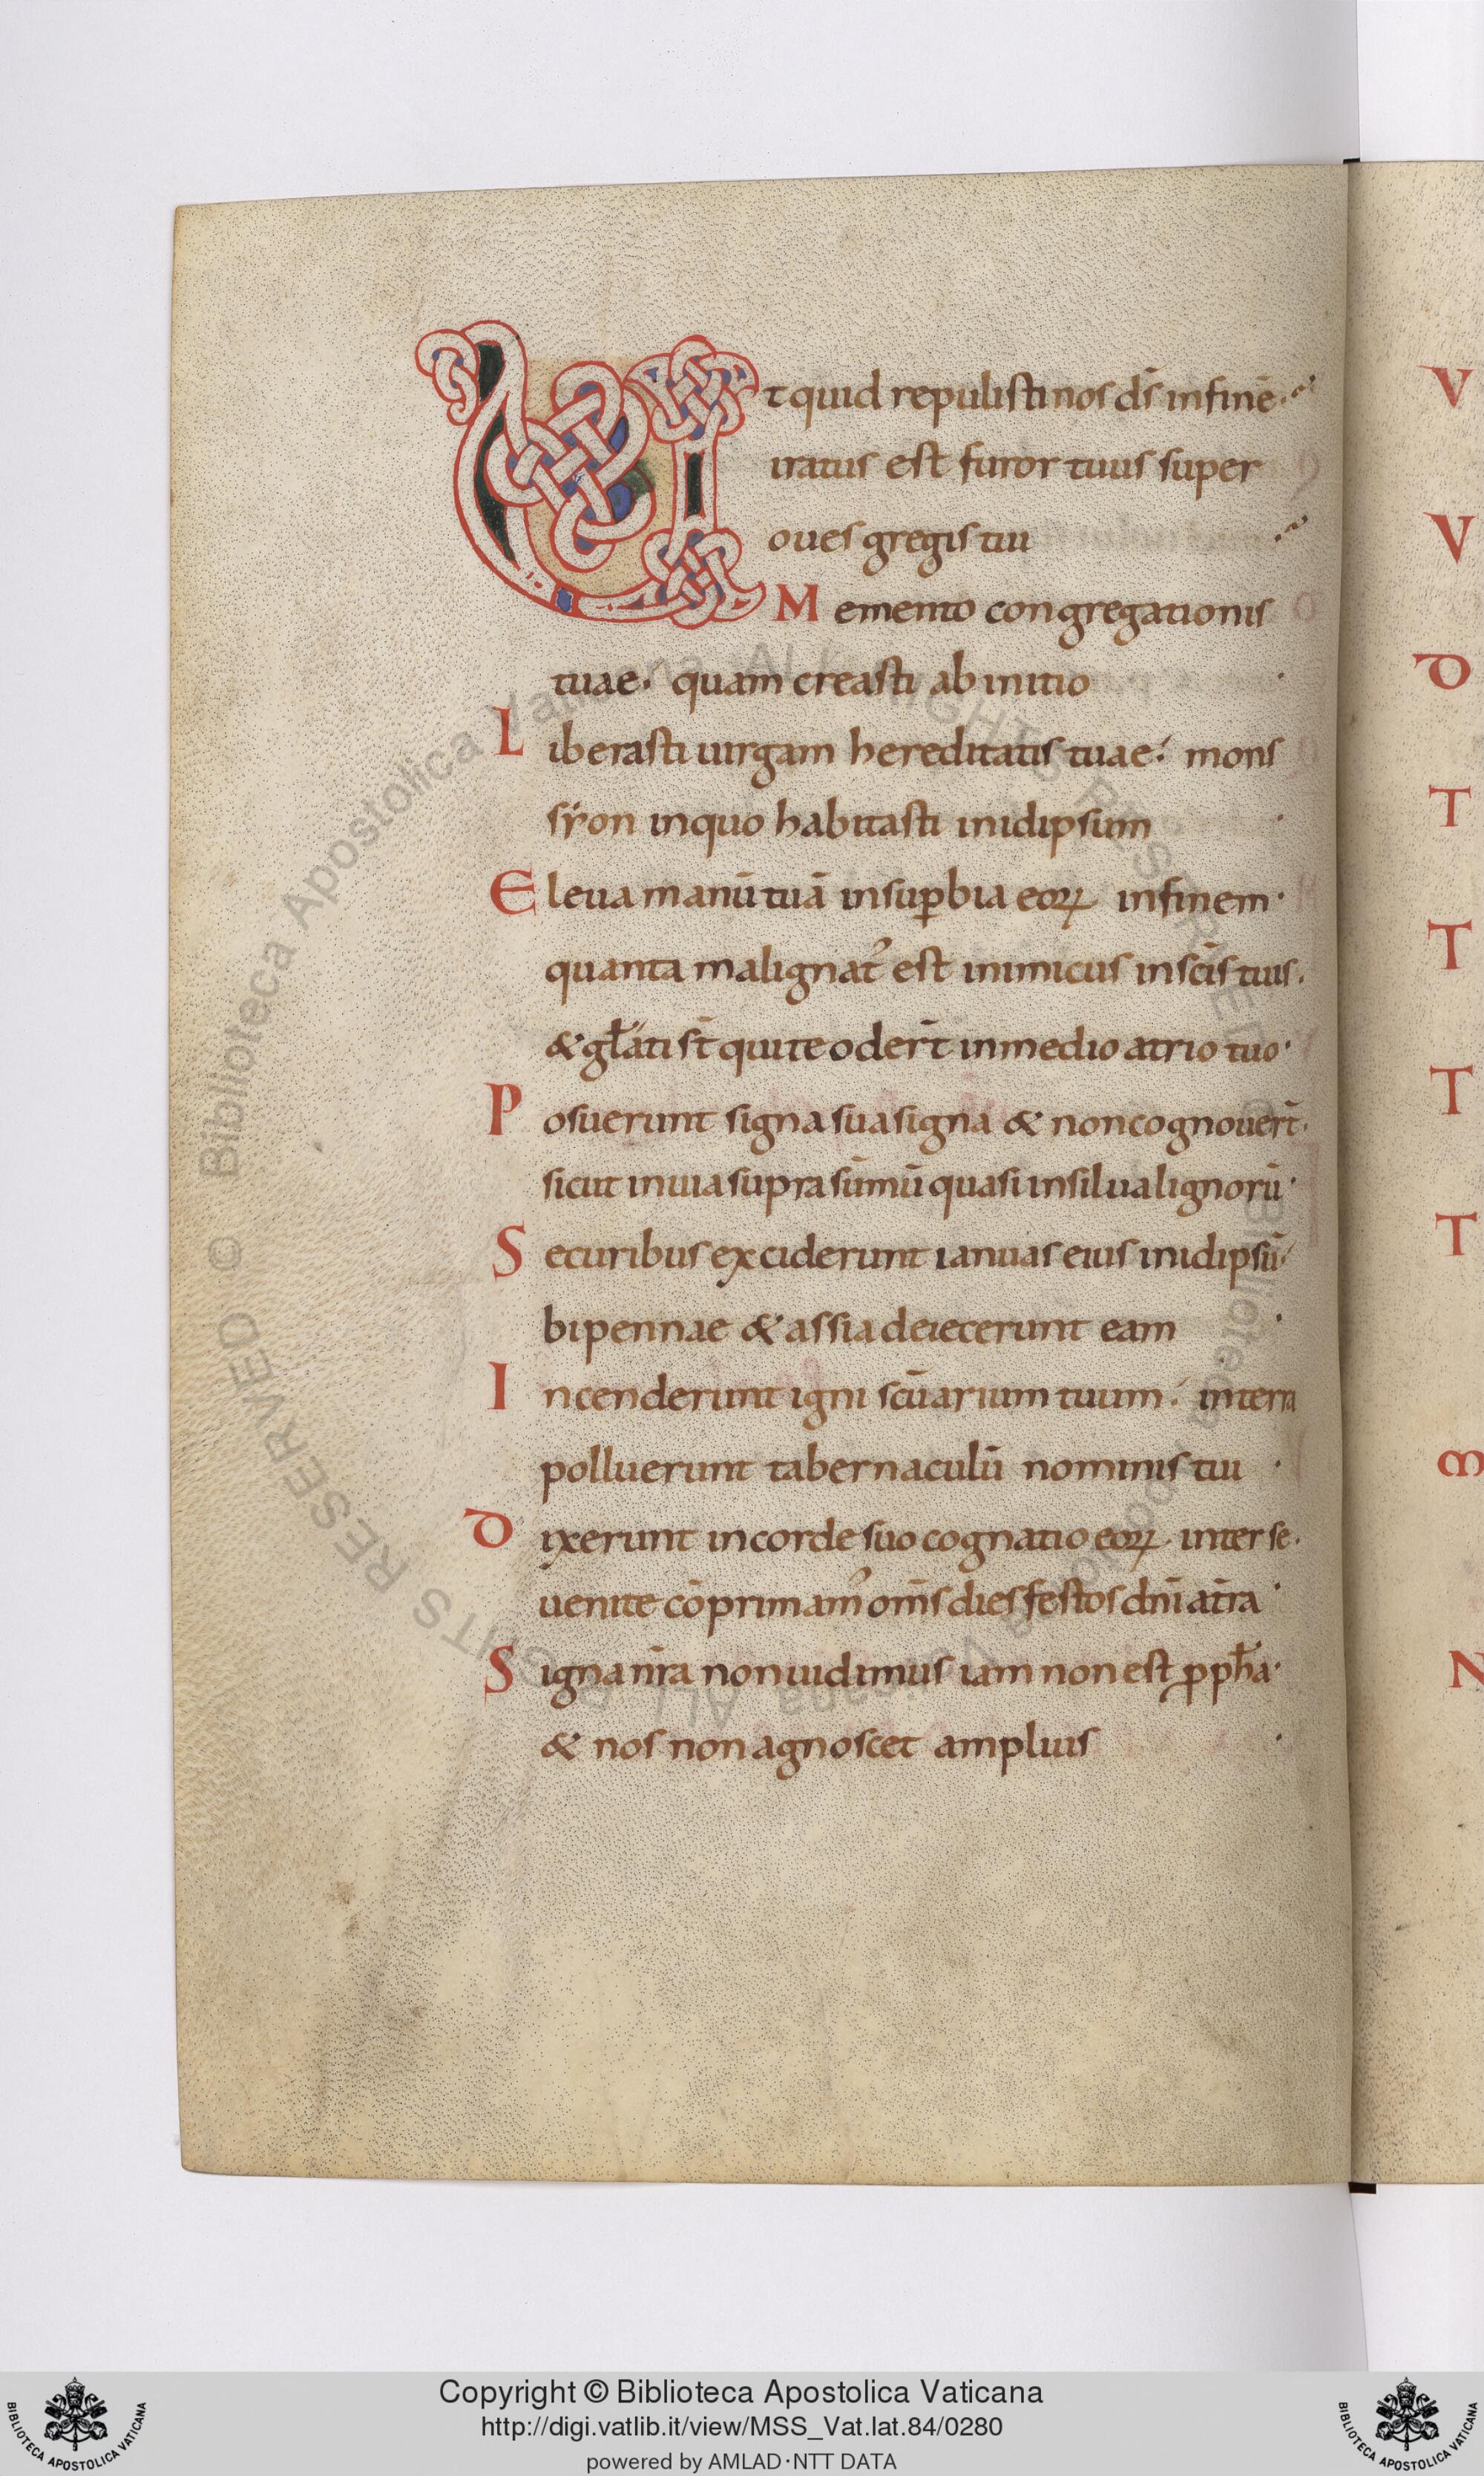 Ut quid repulisti nos ds̄ in finē.
iratus est furor tuus super
oues gregis tui
Memento congregationis
tuae. quam creasti ab initio
Liberasti uirgam hereditatis tuae: mons
syon in quo habitasti in idipsum
Eleua manū tuā in suꝑbia eoꝝ in finem·
quanta malignat᾽ est inimicus in scīs tuis.
& gl̄ati st̄ qui te odert̄ in medio atrio tuo·
Posuerunt signa sua signa & non cognouert̄.
sicut in uia supra summū quasi in silua lignorū·
Securibus exciderunt ianuas eius in idipsū
bipennae & assia deiecerunt eam
Incenderunt igni scūarium tuum: in terra
polluerunt tabernaculū nominis tui
Dixerunt in corde suo cognatio eoꝝ inter se.
uenite cōprimam᾽ om̄s dies festos dn̄i at̄ra
Signa nr̄a non uidimus iam non est ꝓph̄a·
& nos non agnoscet amplius
V
V
D
T
T
T
T
M
N
© Biblioteca Apostolica Vaticana ALL RIGHTS RESERVED
Copyright © Biblioteca Apostolica Vaticana
http://digi.vatlib.it/view/MSS_Vat.lat.84/0280
powered by AMLAD·NTT DATA
BIBLIOTECA APOSTOLICA VATICANA
BIBLIOTECA APOSTOLICA VATICANA